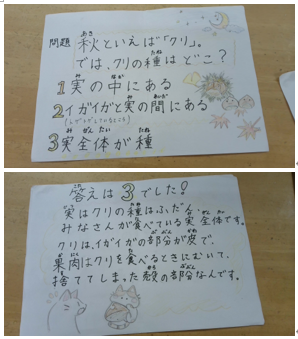 問題 秋といえば「クリ」。
では、クリの種はどこ？
1 実の中にある
2 イガイガと実の間にある
3 実全体が種
答えは3でした！
実はクリの種はふだん、
みなさんが食べている実全体です。
クリは、イガイガの部分が皮で、
果肉はクリを食べるときにむいて、
捨ててしまった殻の部分なんです。